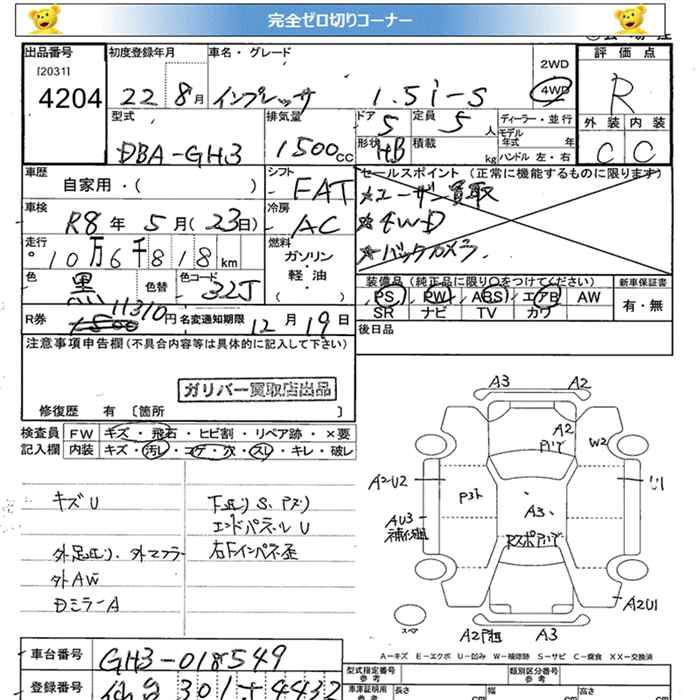 完全ゼロ切りコーナー
出品番号
[2031]
4204
初度登録年月
22 8月
車名・グレード
インプレッサ 1.5i-S
2WD
4WD
評価点
R
外装 内装
C C
型式
DBA-GH3
排気量
1500cc
ドア
5
定員
5人
形状
HB
積載
kg
ディーラー・並行
モデル年式 年
ハンドル 左・右
車歴
自家用・( )
シフト
FAT
セールスポイント (正常に機能するものに限ります)
★ユーザー買取
★4WD
★バックカメラ
車検
R8年 5月(23日)
冷房
AC
走行
10万6千818km
燃料
ガソリン・軽油・( )
色
黒
色替
色コード
32J
装備品 (純正品に限り○をつけてください)
PS PW ABS エアB AW
SR ナビ TV カワ
新車保証書
有・無
R券
11310円
名変通知期限 12月19日
後日品
注意事項申告欄(不具合内容等は具体的に記入して下さい)
ガリバー買取店出品
修復歴 有 〔箇所 〕
検査員記入欄
FW キズ・飛石・ヒビ割・リペア跡・×要
内装 キズ・汚レ・コゲ・穴・スレ・キレ・破レ
キズU
下廻りS、
エンドパネルU
外マフラ
右Fインパネ歪
外AW
DミラーA
A3 A2
A2
W2
A2U2
P3ト
U1
A3
AU3
A2U1
スペア
A2 A3
A-キズ E-エクボ U-凹み W-補修跡 S-サビ C-腐食 XX-交換済
車台番号
GH3-018549
登録番号
仙台 301 す 4432
型式指定番号
類別区分番号
車庫証明用
長さ cm
幅 cm
高さ cm